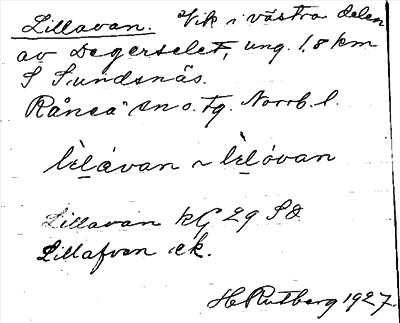 Lillavan. Vik i västra delen
av Degerselet, ung. 1,8 km
S Sundsnäs.
Råneå sn o. tg. Norrb. l.
lìlávan ~ lìlóvan
Lillavan kG 29 SO
Lillafven ek.
H Rutberg 1927.